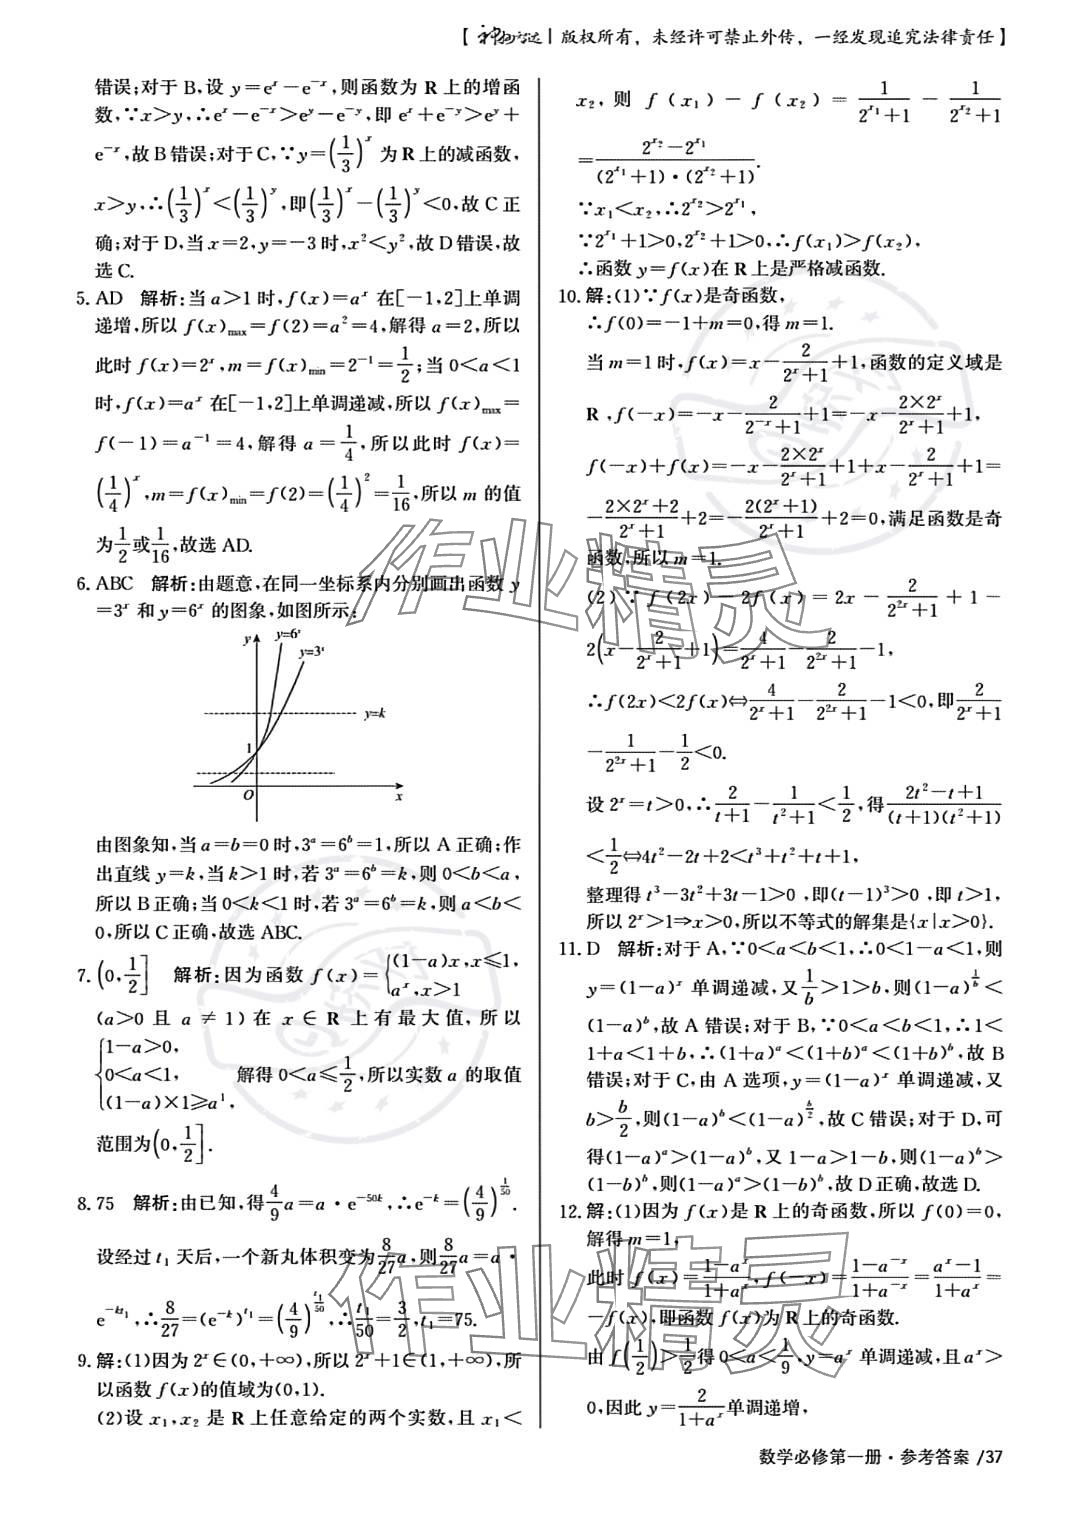 【神州智达 | 版权所有，未经许可禁止外传，一经发现追究法律责任】
错误;对于 B,设 y=eˣ－e⁻ˣ,则函数为 R 上的增函
数,∵x>y,∴eˣ－e⁻ˣ>eʸ－e⁻ʸ,即 eˣ＋e⁻ʸ>eʸ＋
e⁻ˣ,故 B 错误;对于 C,∵y=(1/3)ˣ 为 R 上的减函数,
x>y,∴(1/3)ˣ<(1/3)ʸ,即(1/3)ˣ－(1/3)ʸ<0,故 C 正
确;对于 D,当 x=2,y=－3 时,x²<y²,故 D 错误,故
选 C.
5. AD　解析:当 a>1 时,f(x)=aˣ 在[－1,2]上单调
递增,所以 f(x)max=f(2)=a²=4,解得 a=2,所以
此时 f(x)=2ˣ,m=f(x)min=2⁻¹=1/2;当 0<a<1
时,f(x)=aˣ 在[－1,2]上单调递减,所以 f(x)max=
f(－1)=a⁻¹=4,解得 a=1/4,所以此时 f(x)=
(1/4)ˣ,m=f(x)min=f(2)=(1/4)²=1/16,所以 m 的值
为1/2或1/16,故选 AD.
6. ABC　解析:由题意,在同一坐标系内分别画出函数 y
=3ˣ 和 y=6ˣ 的图象,如图所示:
y y=6ˣ
y=3ˣ
y=k
1
O x
由图象知,当 a=b=0 时,3ᵃ=6ᵇ=1,所以 A 正确;作
出直线 y=k,当 k>1 时,若 3ᵃ=6ᵇ=k,则 0<b<a,
所以 B 正确;当 0<k<1 时,若 3ᵃ=6ᵇ=k,则 a<b<
0,所以 C 正确,故选 ABC.
7. (0,1/2]　解析:因为函数 f(x)={(1－a)x,x≤1, aˣ,x>1
(a>0 且 a≠1)在 x∈R 上有最大值,所以
{1－a>0,
0<a<1,　解得 0<a≤1/2,所以实数 a 的取值
(1－a)×1≥a¹,
范围为(0,1/2].
8. 75　解析:由已知,得4/9a=a·e⁻⁵⁰ᵏ,∴e⁻ᵏ=(4/9)^(1/50).
设经过 t₁ 天后,一个新丸体积变为8/27a,则8/27a=a·
e^(－kt₁),∴8/27=(e⁻ᵏ)^(t₁)=(4/9)^(t₁/50),∴t₁/50=3/2,t₁=75.
9. 解:(1)因为 2ˣ∈(0,＋∞),所以 2ˣ＋1∈(1,＋∞),所
以函数 f(x)的值域为(0,1).
(2)设 x₁,x₂ 是 R 上任意给定的两个实数,且 x₁<
x₂,则 f(x₁)－f(x₂)=1/(2^(x₁)＋1)－1/(2^(x₂)＋1)
=(2^(x₂)－2^(x₁))/((2^(x₁)＋1)·(2^(x₂)＋1)).
∵x₁<x₂,∴2^(x₂)>2^(x₁),
∵2^(x₁)＋1>0,2^(x₂)＋1>0,∴f(x₁)>f(x₂),
∴函数 y=f(x)在 R 上是严格减函数.
10. 解:(1)∵f(x)是奇函数,
∴f(0)=－1＋m=0,得 m=1.
当 m=1 时,f(x)=x－2/(2ˣ＋1)＋1,函数的定义域是
R,f(－x)=－x－2/(2⁻ˣ＋1)＋1=－x－(2×2ˣ)/(2ˣ＋1)＋1,
f(－x)＋f(x)=－x－(2×2ˣ)/(2ˣ＋1)＋1＋x－2/(2ˣ＋1)＋1=
－(2×2ˣ＋2)/(2ˣ＋1)＋2=－2(2ˣ＋1)/(2ˣ＋1)＋2=0,满足函数是奇
函数,所以 m=1.
(2)∵f(2x)－2f(x)=2x－2/(2²ˣ＋1)＋1－
2(x－2/(2ˣ＋1)＋1)=4/(2ˣ＋1)－2/(2²ˣ＋1)－1,
∴f(2x)<2f(x)⇔4/(2ˣ＋1)－2/(2²ˣ＋1)－1<0,即2/(2ˣ＋1)
－1/(2²ˣ＋1)－1/2<0.
设 2ˣ=t>0,∴2/(t＋1)－1/(t²＋1)<1/2,得(2t²－t＋1)/((t＋1)(t²＋1))
<1/2⇔4t²－2t＋2<t³＋t²＋t＋1,
整理得 t³－3t²＋3t－1>0,即(t－1)³>0,即 t>1,
所以 2ˣ>1⇒x>0,所以不等式的解集是{x|x>0}.
11. D　解析:对于 A,∵0<a<b<1,∴0<1－a<1,则
y=(1－a)ˣ 单调递减,又1/b>1>b,则(1－a)^(1/b)<
(1－a)ᵇ,故 A 错误;对于 B,∵0<a<b<1,∴1<
1＋a<1＋b,∴(1＋a)ᵃ<(1＋b)ᵃ<(1＋b)ᵇ,故 B
错误;对于 C,由 A 选项,y=(1－a)ˣ 单调递减,又
b>b/2,则(1－a)ᵇ<(1－a)^(b/2),故 C 错误;对于 D,可
得(1－a)ᵃ>(1－a)ᵇ,又 1－a>1－b,则(1－a)ᵇ>
(1－b)ᵇ,则(1－a)ᵃ>(1－b)ᵇ,故 D 正确,故选 D.
12. 解:(1)因为 f(x)是 R 上的奇函数,所以 f(0)=0,
解得 m=1,
此时 f(x)=(1－aˣ)/(1＋aˣ),f(－x)=(1－a⁻ˣ)/(1＋a⁻ˣ)=(aˣ－1)/(1＋aˣ)=
－f(x),即函数 f(x)为 R 上的奇函数.
由 f(1/2)>1/2得 0<a<1/9,y=aˣ 单调递减,且 aˣ>
0,因此 y=2/(1＋aˣ)单调递增,
作业精灵
作业精灵
数学必修第一册·参考答案 /37